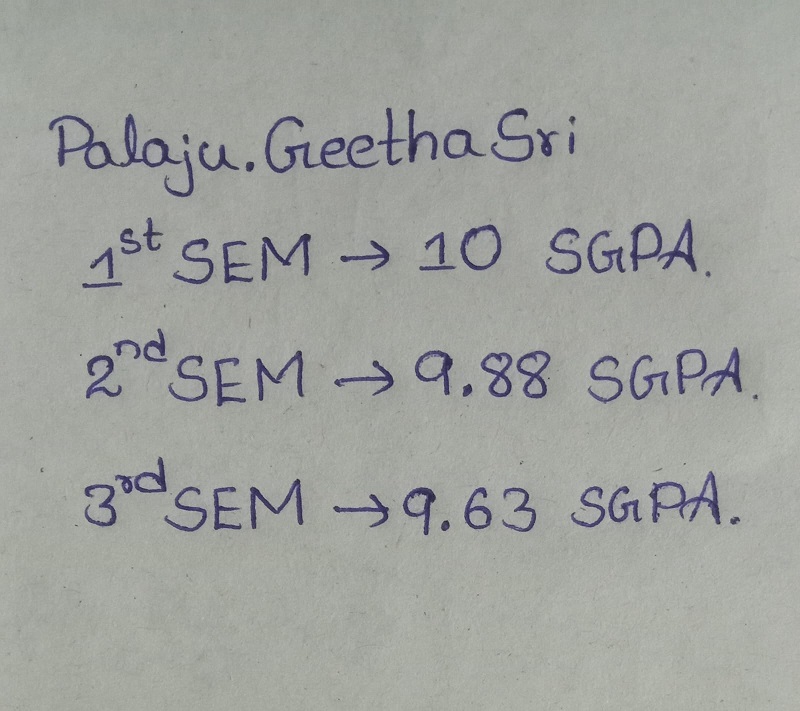 Palaju. Geetha Sri
1st SEM → 10 SGPA.
2nd SEM → 9.88 SGPA.
3rd SEM → 9.63 SGPA.